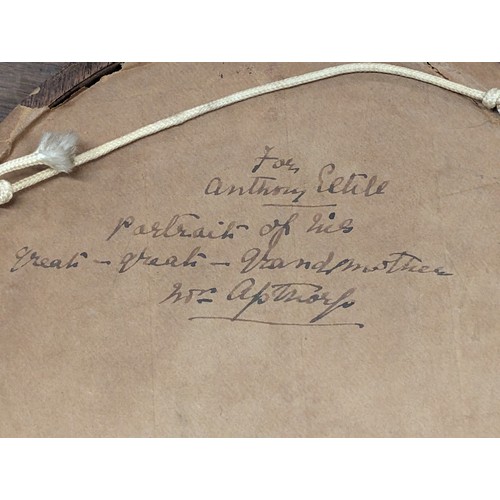 For
Anthony
Portrait of his
Great - Great - Grandmother
Mrs Apthorp